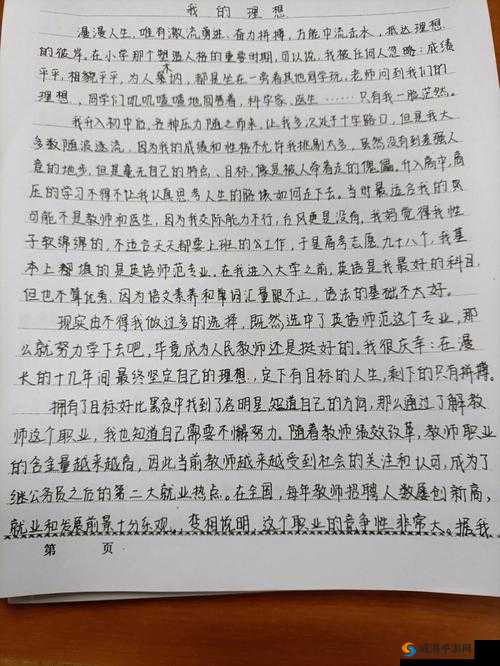 我的理想
漫漫人生，唯有激流勇进，奋力拼搏，方能中流击水，抵达理想
的彼岸。在小学那个塑造人格的重要时期，可以说，我被任何人忽略：成绩
平平，相貌平平，为人木讷，都是坐在一旁看其他同学玩，老师问到我们的
理想，同学们叽叽喳喳地回答着，科学家、医生……只有我一脸茫然。
我升入初中后，各种压力随之而来，让我多次处于十字路口，但是我大
多数随波逐流，因为我的成绩和性格不允许我挑剔太多，虽然没有到差强人
意的地步，但是毫无自己的特点、目标，像是被人牵着走的傀儡。升入高中，高
压的学习不得不让我认真思考人生的路该如何走下去。当时最适合我的职
可能不是教师和医生，因为我交际能力不行，台风更是没有，我妈觉得我性
子软绵绵的，不适合天天都要上班的公工作，于是高考志愿九十八个，我基
本上都填的是英语师范专业。在我进入大学之前，英语是我最好的科目，
但也不算优秀，因为语文素养和单词汇量跟不上，语法的基础不太好。
现实由不得我做过多的选择，既然选中了英语师范这个专业，那
么就努力学下去吧，毕竟成为人民教师还是挺好的。我很庆幸：在漫
长的十几年间最终坚定自己的理想，定下有目标的人生，剩下的只有拼搏。
拥有了目标好比黑夜中找到了启明星，知道自己的方向，那么通过了解教
师这个职业，我也知道自己需要不懈努力。随着教师绩效改革，教师职业
的含金量越来越高，因此当前教师越来越受到社会的关注和认可，成为了
继公务员之后的第二大就业热点。在全国，每年教师招聘人数屡创新高，
就业和发展前景十分乐观，变相说明，这个职业的竞争性非常大。据我
第 页